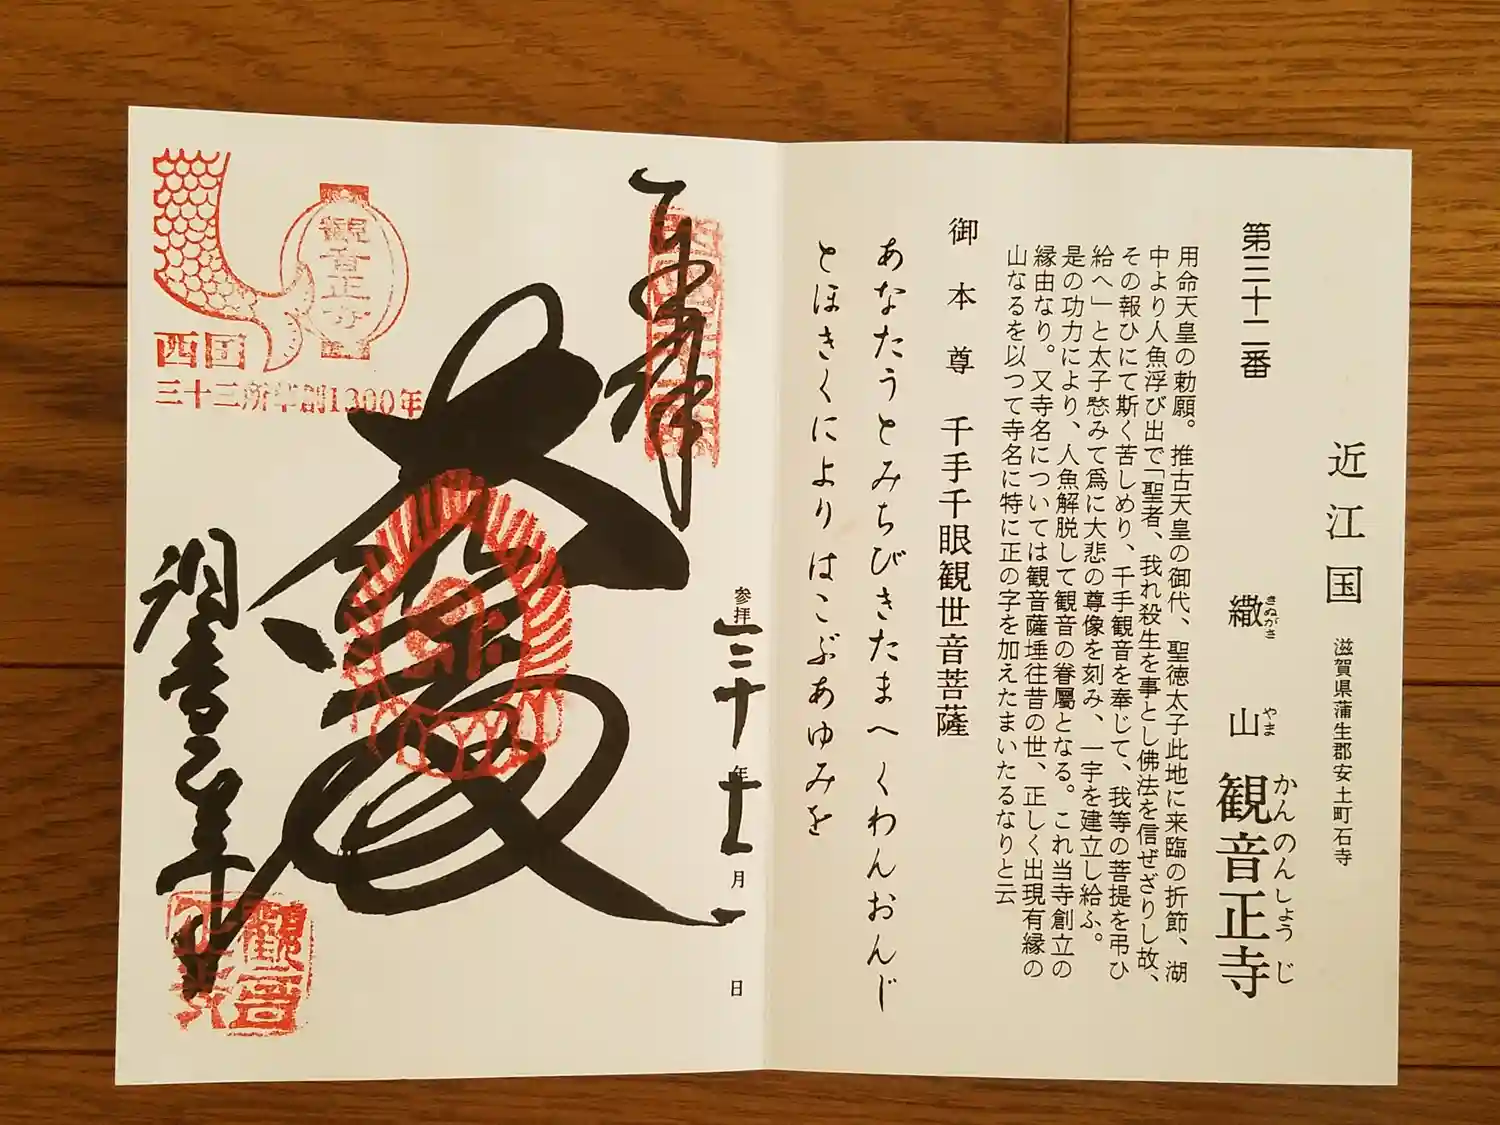 近江国
滋賀県蒲生郡安土町石寺
第三十二番
繖山 観音正寺
きぬがさ やま かんのんしょうじ
用命天皇の勅願。推古天皇の御代、聖徳太子此地に来臨の折節、湖
中より人魚浮び出で「聖者、我れ殺生を事とし佛法を信ぜざりし故、
その報ひにて斯く苦しめり、千手観音を奉じて、我等の菩提を弔ひ
給へ」と太子愍みて爲に大悲の尊像を刻み、一宇を建立し給ふ。
是の功力により、人魚解脱して観音の眷屬となる。これ当寺創立の
縁由なり。又寺名については観音薩埵往昔の世、正しく出現有縁の
山なるを以つて寺名に特に正の字を加えたまいたるなりと云
御本尊 千手千眼観世音菩薩
あなたうとみちびきたまへくわんおんじ
とほきくによりはこぶあゆみを
奉拝
参拝 三十年十一月 日
大悲殿
観音正寺
西国
三十三所草創1300年
観音正寺
観音正寺